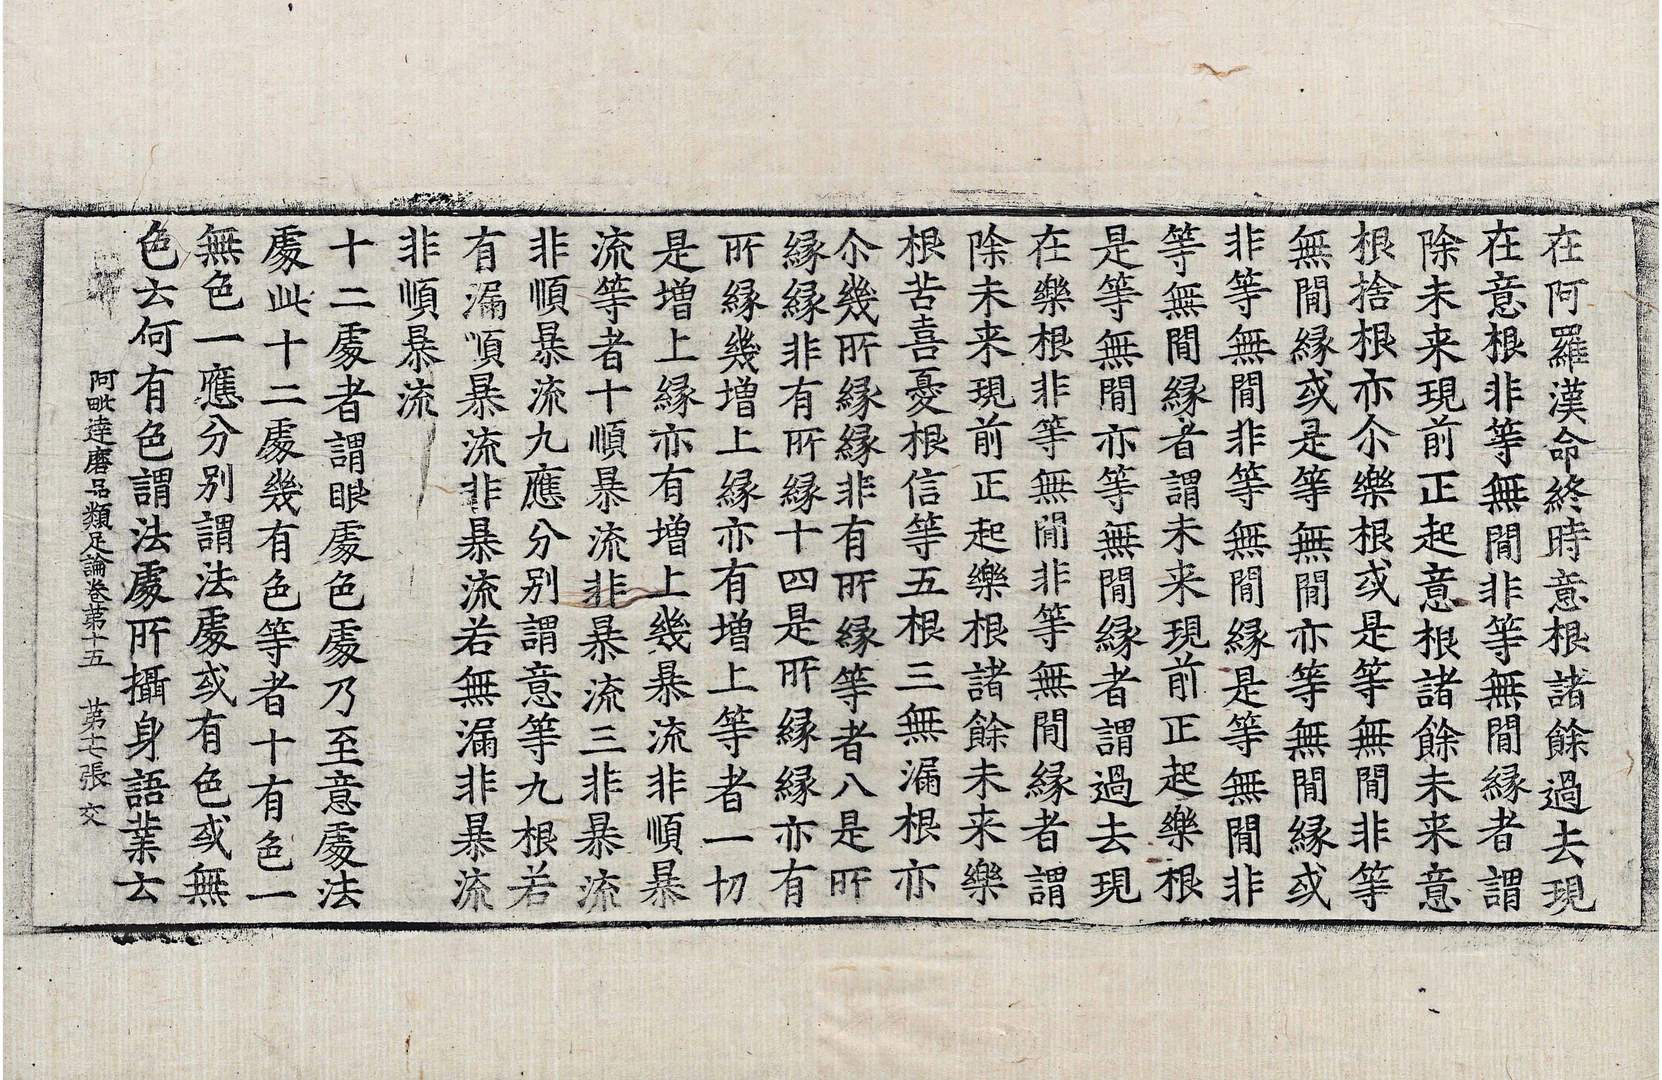 在阿羅漢命終時意根諸餘過去現
在意根非等無間非等無間縁者謂
除未来現前正起意根諸餘未来意
根捨根亦尒樂根或是等無間非等
無間縁或是等無間亦等無間縁或
非等無間非等無間縁是等無間非
等無間縁者謂未来現前正起樂根
是等無間亦等無間縁者謂過去現
在樂根非等無間非等無間縁者謂
除未来現前正起樂根諸餘未来樂
根苦喜憂根信等五根三無漏根亦
尒幾所縁縁非有所縁等者八是所
縁縁非有所縁十四是所縁縁亦有
所縁幾增上縁亦有增上等者一切
是增上縁亦有增上幾暴流非順暴
流等者十順暴流非暴流三非暴流
非順暴流九應分別謂意等九根若
有漏順暴流非暴流若無漏非暴流
非順暴流
十二處者謂眼處色處乃至意處法
處此十二處幾有色等者十有色一
無色一應分別謂法處或有色或無
色云何有色謂法處所攝身語業云
阿毗達磨品類足論卷第十五　第七張　交